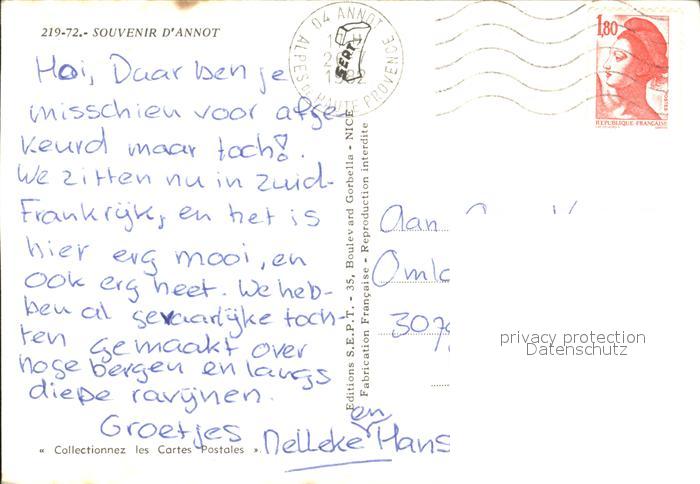 219-72.- SOUVENIR D'ANNOT
04 ANNOT
ALPES
HAUTE PROVENCE
SEPT
1,80
REPUBLIQUE FRANÇAISE
POSTES
Hoi, Daar ben je
misschien voor afge-
keurd maar toch!.
We zitten nu in zuid-
Frankrijk, en het is
hier erg mooi, en
ook erg heet. We heb-
ben al gevaarlijke toch-
ten gemaakt over
hoge bergen en langs
diepe ravijnen.
Groetjes Nelleke en Hans
« Collectionnez les Cartes Postales ».
Editions S.E.P.T. - 35, Boulevard Gorbella - NICE
Fabrication Française - Reproduction interdite
Aan
privacy protection
Datenschutz